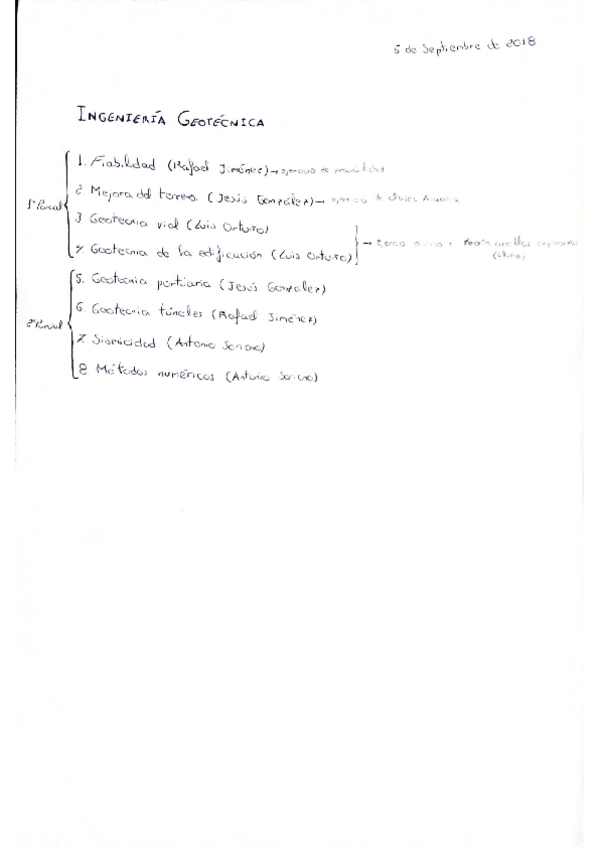 5 de Septiembre de 2018
INGENIERÍA GEOTÉCNICA
1. Fiabilidad (Rafael Jiménez) → ejercicio de
2 Mejora del terreno (Jesús González) → ejercicio de
1º Parcial
3 Geotecnia vial (Luis Ortuño)
4 Geotecnia de la edificación (Luis Ortuño) →
5. Geotecnia portuaria (Jesús González)
6. Geotecnia túneles (Rafael Jiménez)
2º Parcial
7. Sismicidad (Antonio Soriano)
8 Métodos numéricos (Antonio Soriano)